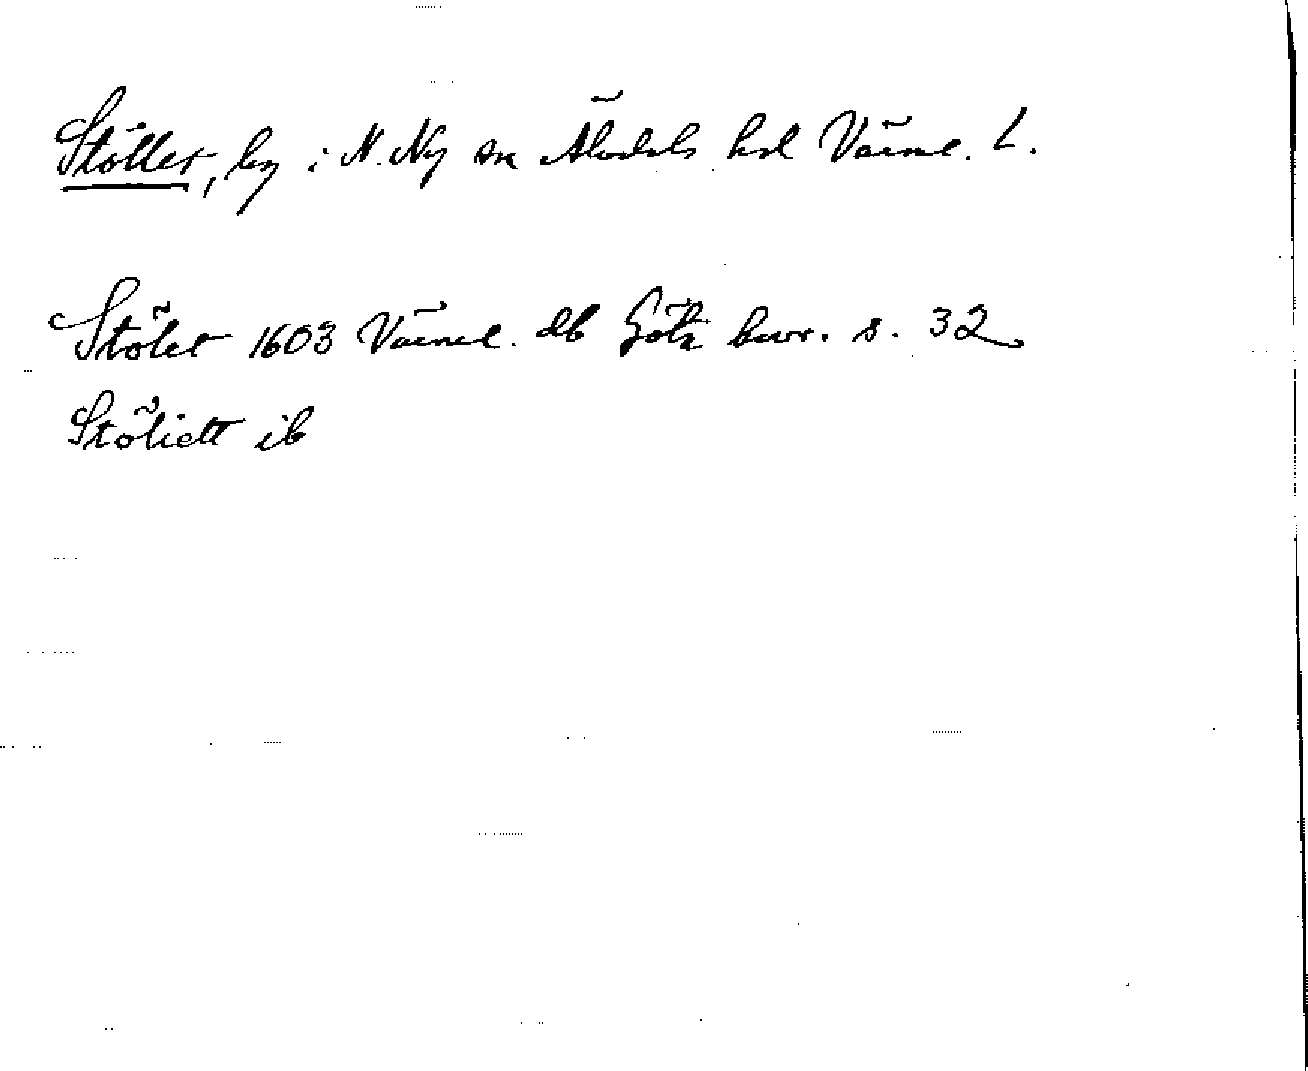 Stöllet, by i N. Ny sn Älvdals hd Värml. L.
Stölet 1603 Värml. db Götz burr. s. 32
Stöliett ib